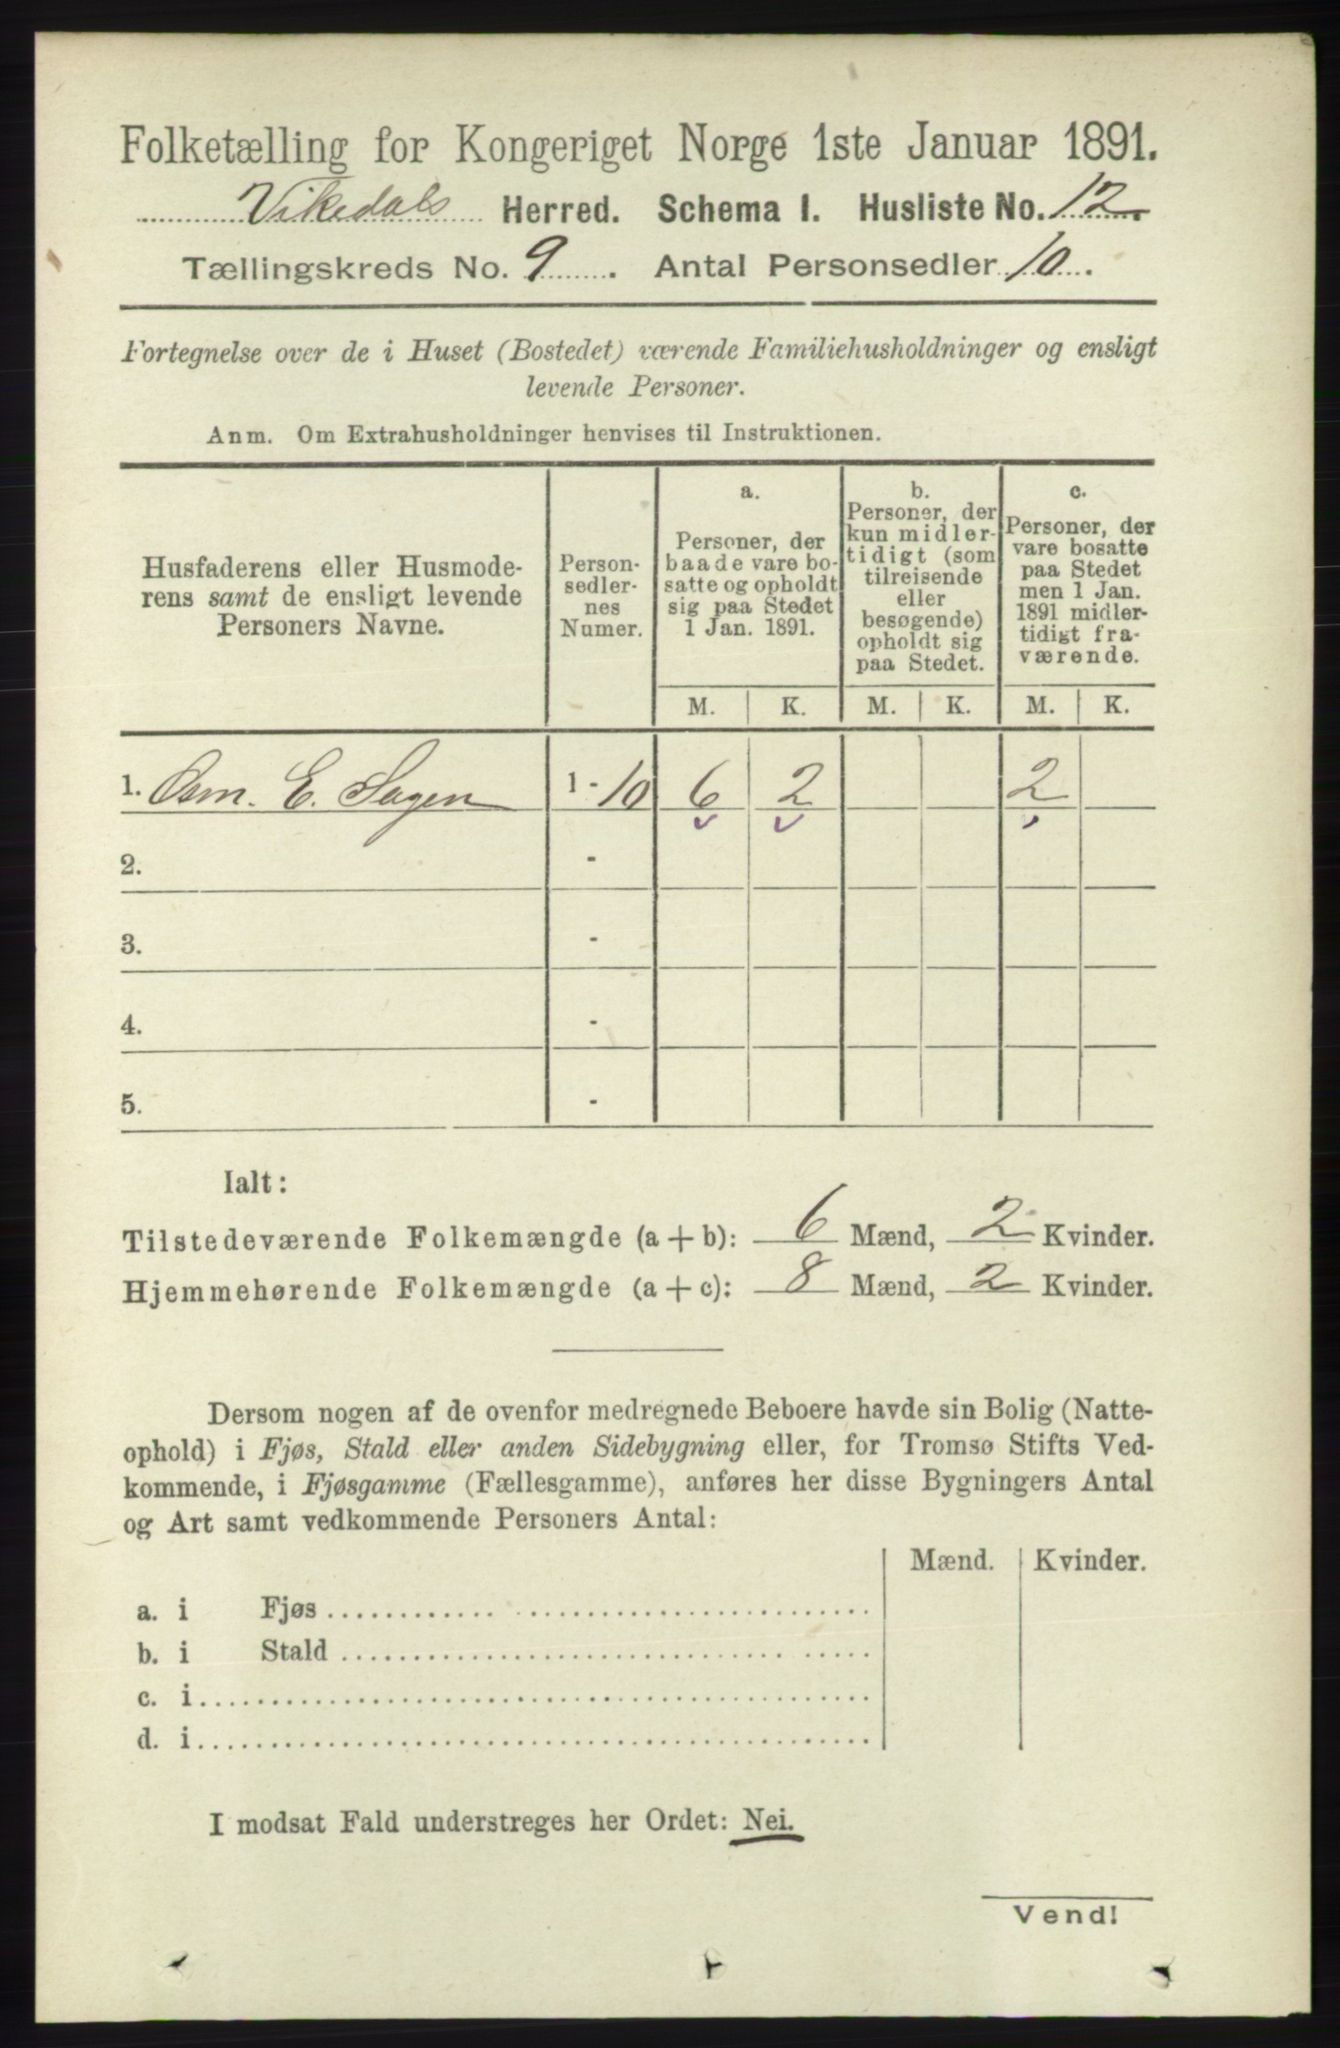 Folketælling for Kongeriget Norge 1ste Januar 1891.
Vikedals Herred. Schema I. Husliste No. 12.
Tællingskreds No. 9. Antal Personsedler 10.
Fortegnelse over de i Huset (Bostedet) værende Familiehusholdninger og ensligt
levende Personer.
Anm. Om Extrahusholdninger henvises til Instruktionen.
Husfaderens eller Husmode-
rens samt de ensligt levende
Personers Navne.
Person-
sedler-
nes
Numer.
a.
Personer, der
baade vare bo-
satte og opholdt
sig paa Stedet
1 Jan. 1891.
b.
Personer, der
kun midler-
tidigt (som
tilreisende
eller
besøgende)
opholdt sig
paa Stedet.
c.
Personer, der
vare bosatte
paa Stedet
men 1 Jan.
1891 midler-
tidigt fra-
værende.
M. K. M. K. M. K.
1. Osm. E. Sagen 1 - 10 6 2 2
2. -
3. -
4. -
5. -
Ialt:
Tilstedeværende Folkemængde (a + b): 6 Mænd, 2 Kvinder.
Hjemmehørende Folkemængde (a + c): 8 Mænd, 2 Kvinder.
Dersom nogen af de ovenfor medregnede Beboere havde sin Bolig (Natte-
ophold) i Fjøs, Stald eller anden Sidebygning eller, for Tromsø Stifts Ved-
kommende, i Fjøsgamme (Fællesgamme), anføres her disse Bygningers Antal
og Art samt vedkommende Personers Antal:
Mænd. Kvinder.
a. i Fjøs
b. i Stald
c. i
d. i
I modsat Fald understreges her Ordet: Nei.
Vend!